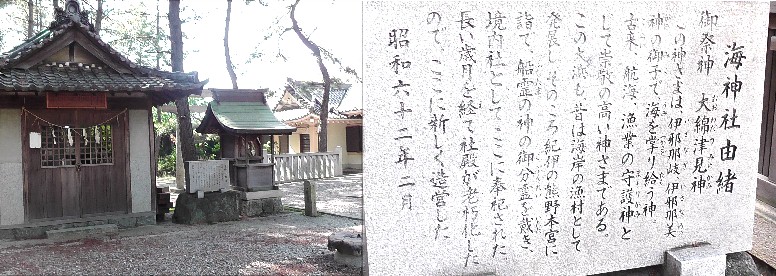 海神社由緒
御祭神 大綿津見神
この神さまは伊邪那岐、伊邪那美
神の御子で、海を掌り給う神。
古来、航海、漁業の守護神と
して崇敬の高い神さまである。
この大浜も、昔は海岸の漁村として
発展し、そのころ紀伊の熊野本宮に
詣で、船霊の神の御分霊を戴き、
境内社としてここに奉祀された
長い歳月を経て社殿が老朽化した
ので、ここに新しく造営した
昭和六十二年二月